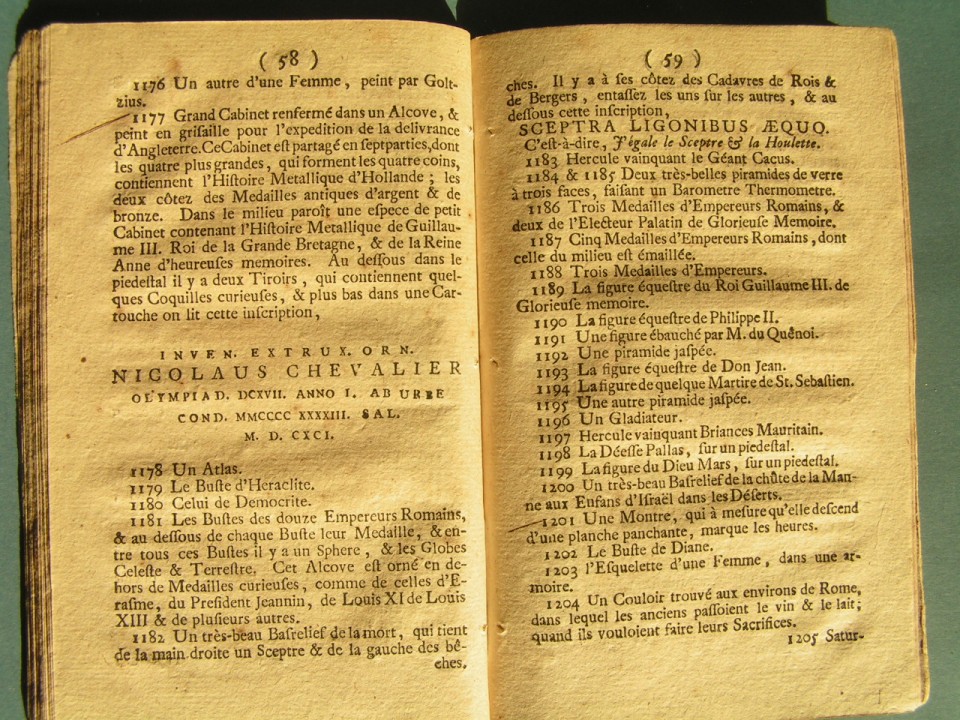 ( 58 )
1176 Un autre d'une Femme, peint par Golt-
zius.
1177 Grand Cabinet renfermé dans un Alcove, &
peint en griſaille pour l'expedition de la delivrance
d'Angleterre. Ce Cabinet eſt partagé en ſept parties, dont
les quatre plus grandes, qui forment les quatre coins,
contiennent l'Hiſtoire Metallique d'Hollande; les
deux côtez des Medailles antiques d'argent & de
bronze. Dans le milieu paroît une eſpece de petit
Cabinet contenant l'Hiſtoire Metallique de Guillau-
me III. Roi de la Grande Bretagne, & de la Reine
Anne d'heureuſes memoires. Au deſſous dans le
piedeſtal il y a deux Tiroirs, qui contiennent quel-
ques Coquilles curieuſes, & plus bas dans une Car-
touche on lit cette inſcription,
INVEN. EXTRUX. ORN.
NICOLAUS CHEVALIER
OLYMPIAD. DCXVII. ANNO I. AB URBE
COND. MMCCCC XXXXIII. SAL.
M. D. CXCI.
1178 Un Atlas.
1179 Le Buſte d'Heraclite.
1180 Celui de Democrite.
1181 Les Buſtes des douze Empereurs Romains,
& au deſſous de chaque Buſte leur Medaille, & en-
tre tous ces Buſtes il y a un Sphere, & les Globes
Celeſte & Terreſtre. Cet Alcove eſt orné en de-
hors de Medailles curieuſes, comme de celles d'E-
raſme, du Preſident Jeannin, de Louis XI de Louis
XIII & de pluſieurs autres.
1182 Un très-beau Baſrelief de la mort, qui tient
de la main droite un Sceptre & de la gauche des bê-
ches.
( 59 )
ches. Il y a à ſes côtez des Cadavres de Rois &
de Bergers, entaſſez les uns ſur les autres, & au
deſſous cette inſcription,
SCEPTRA LIGONIBUS ÆQUO.
C'eſt-à-dire, J'égale le Sceptre & la Houlette.
1183 Hercule vainquant le Géant Cacus.
1184 & 1185 Deux très-belles piramides de verre
à trois faces, faiſant un Barometre Thermometre.
1186 Trois Medailles d'Empereurs Romains, &
deux de l'Electeur Palatin de Glorieuſe Memoire.
1187 Cinq Medailles d'Empereurs Romains, dont
celle du milieu eſt émaillée.
1188 Trois Medailles d'Empereurs.
1189 La figure équeſtre du Roi Guillaume III. de
Glorieuſe memoire.
1190 La figure équeſtre de Philippe II.
1191 Une figure ébauché par M. du Quênoi.
1192 Une piramide jaſpée.
1193 La figure équeſtre de Don Jean.
1194 La figure de quelque Martire de St. Sebaſtien.
1195 Une autre piramide jaſpée.
1196 Un Gladiateur.
1197 Hercule vainquant Briances Mauritain.
1198 La Déeſſe Pallas, ſur un piedeſtal.
1199 La figure du Dieu Mars, ſur un piedeſtal.
1200 Un très-beau Baſrelief de la chûte de la Man-
ne aux Enfans d'Iſraël dans les Déſerts.
1201 Une Montre, qui à meſure qu'elle deſcend
d'une planche panchante, marque les heures.
1202 Le Buſte de Diane.
1203 l'Eſquelette d'une Femme, dans une ar-
moire.
1204 Un Couloir trouvé aux environs de Rome,
dans lequel les anciens paſſoient le vin & le lait;
quand ils vouloient faire leurs Sacrifices.
1205 Satur-